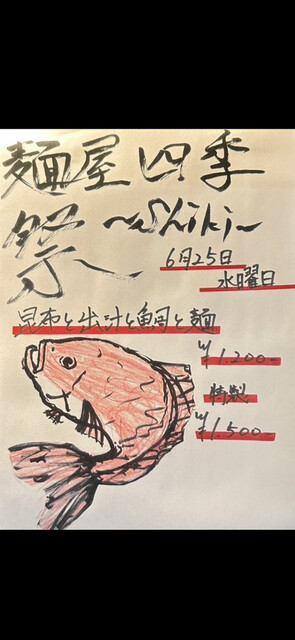 麺屋 四季
祭 〜Shiki〜
6月25日
水曜日
昆布と出汁と鯛と麺
¥1.200-
特製
¥1.500-